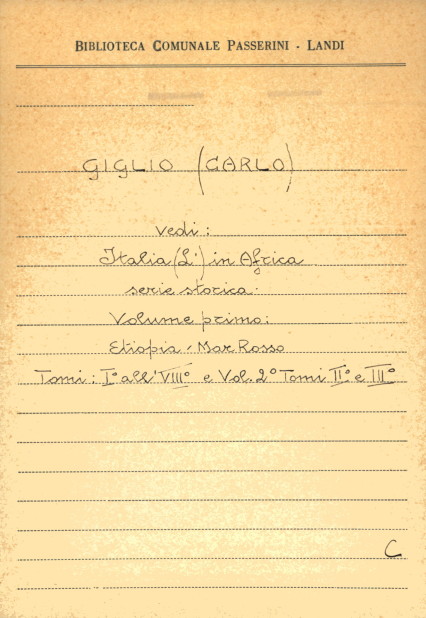 BIBLIOTECA COMUNALE PASSERINI - LANDI
GIGLIO (CARLO)
vedi:
Italia (L') in Africa
serie storica.
Volume primo:
Etiopia - Mar Rosso
Tomi: I° all'VIII° e Vol. 2° Tomi II° e III°
C